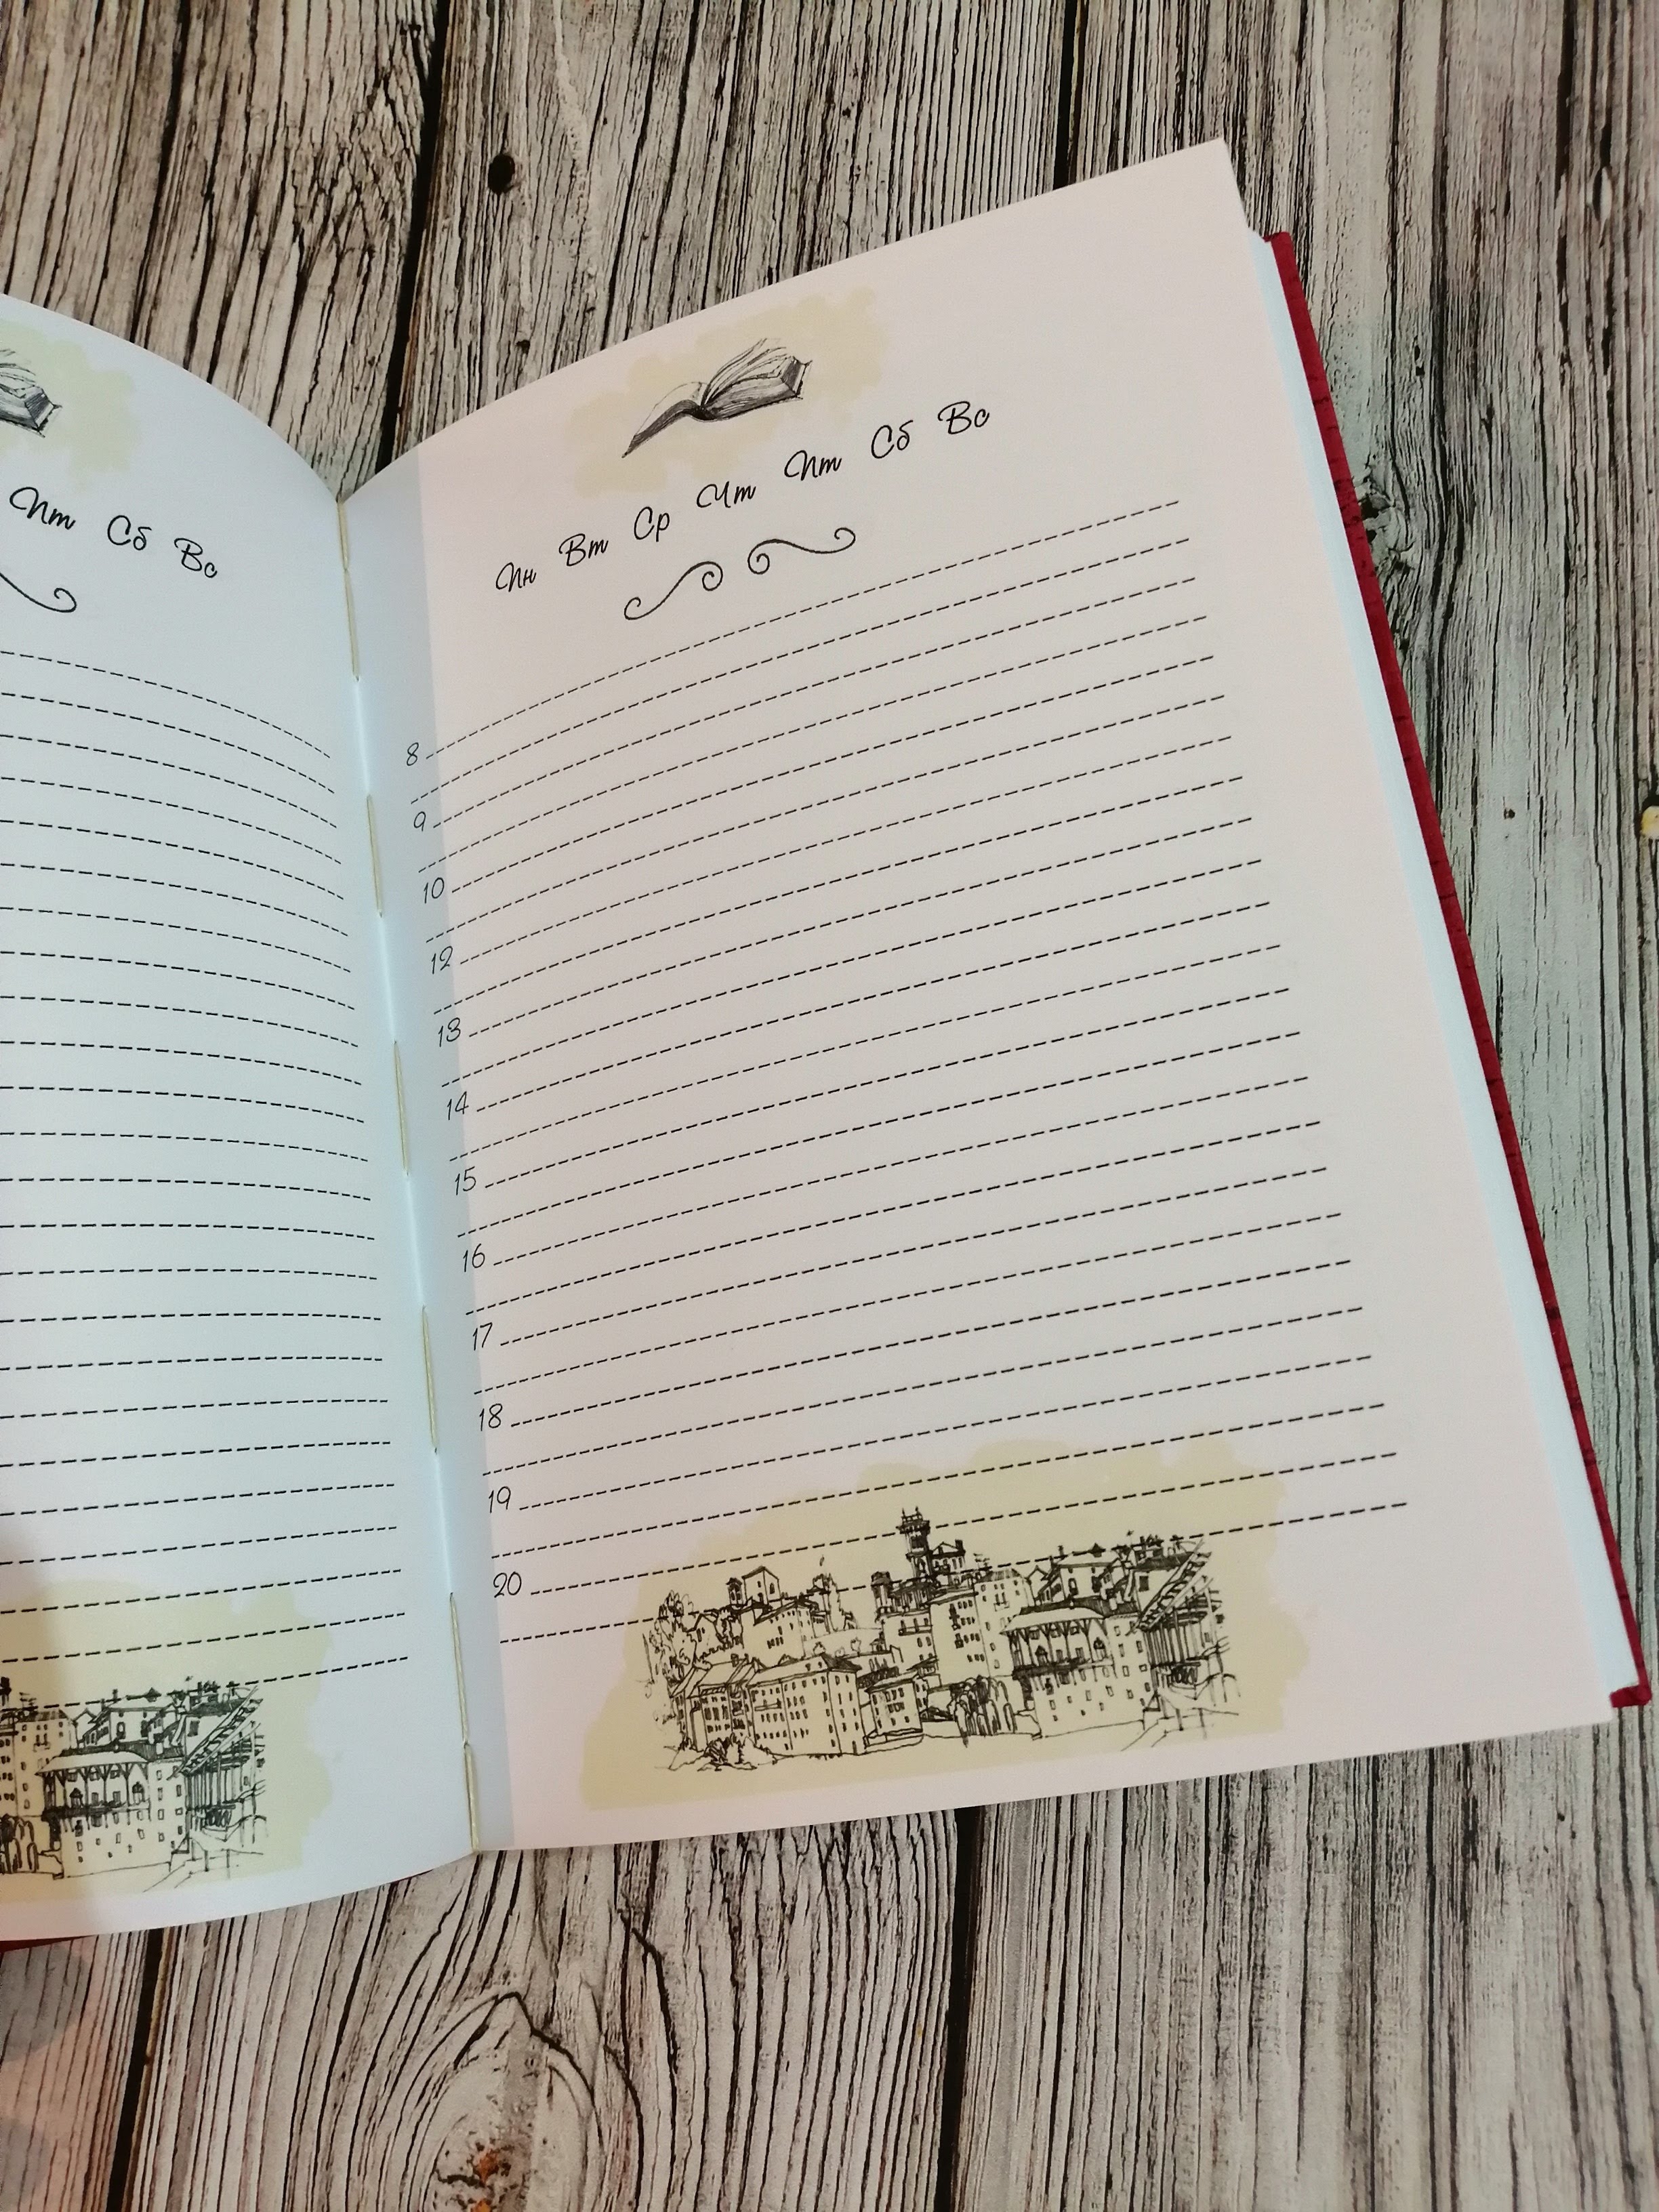 Пт Сб Вс
Пн Вт Ср Чт Пт Сб Вс
8
9
10
12
13
14
15
16
17
18
19
20